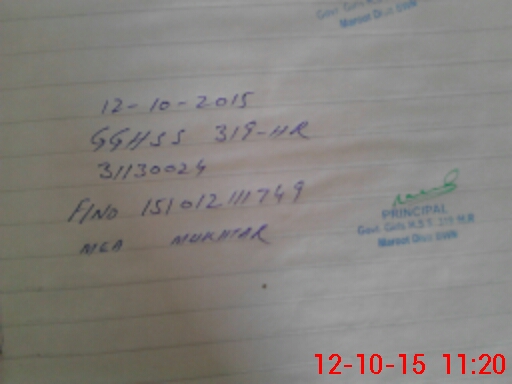 Govt. Girls H.S
Maroot Distt BWN
12-10-2015
GGHSS 319-HR
31130024
F/NO 151012111749
MEA MUKHTAR
PRINCIPAL
Govt. Girls H.S.S. 319 H.R
Maroot Distt BWN
12-10-15 11:20